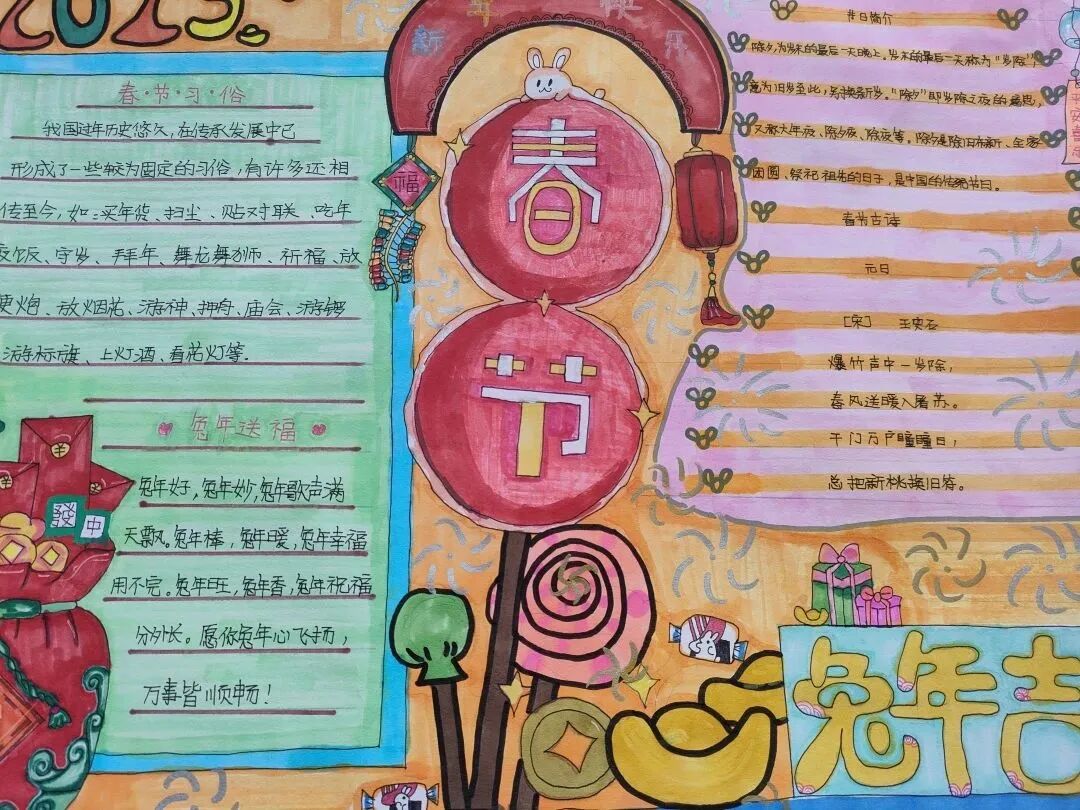 2023.
新年快乐
春节
福
春·节·习·俗
我国过年历史悠久,在传承发展中已
形成了一些较为固定的习俗,有许多还相
传至今,如:买年货、扫尘、贴对联、吃年
夜饭、守岁、拜年、舞龙舞狮、祈福、放
炮、放烟花、游神、押舟、庙会、游锣
游标旗、上灯酒、看花灯等。
兔年送福
兔年好,兔年妙,兔年歌声满
天飘。兔年棒,兔年暖,兔年幸福
用不完。兔年旺,兔年香,兔年祝福
分外长。愿你兔年心飞扬,
万事皆顺畅!
發
中
节日简介
除夕,为岁末的最后一天晚上。岁末的最后一天称为“岁除”,
意为旧岁至此,另换新岁。“除夕”即岁除之夜的意思,
又称大年夜、除夕夜、除夜等。除夕是除旧布新、全家
团圆、祭祀祖先的日子,是中国的传统节日。
春节古诗
元日
[宋] 王安石
爆竹声中一岁除,
春风送暖入屠苏。
千门万户瞳瞳日,
总把新桃换旧符。
平安喜乐
兔年吉